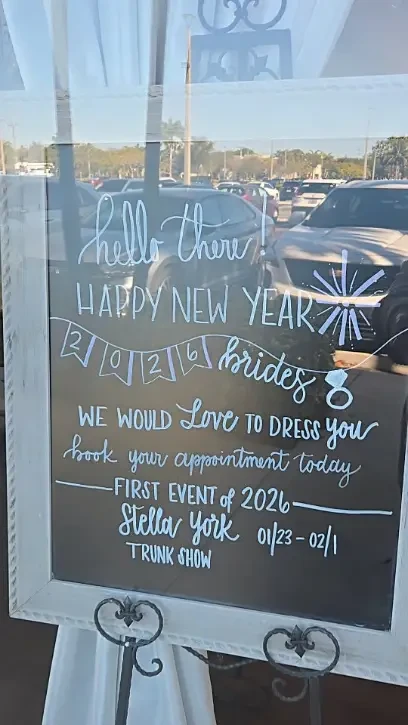 hello there!
HAPPY NEW YEAR
2026 brides
WE WOULD Love TO DRESS you
book your appointment today
FIRST EVENT of 2026
Stella York 01/23 - 02/1
TRUNK SHOW